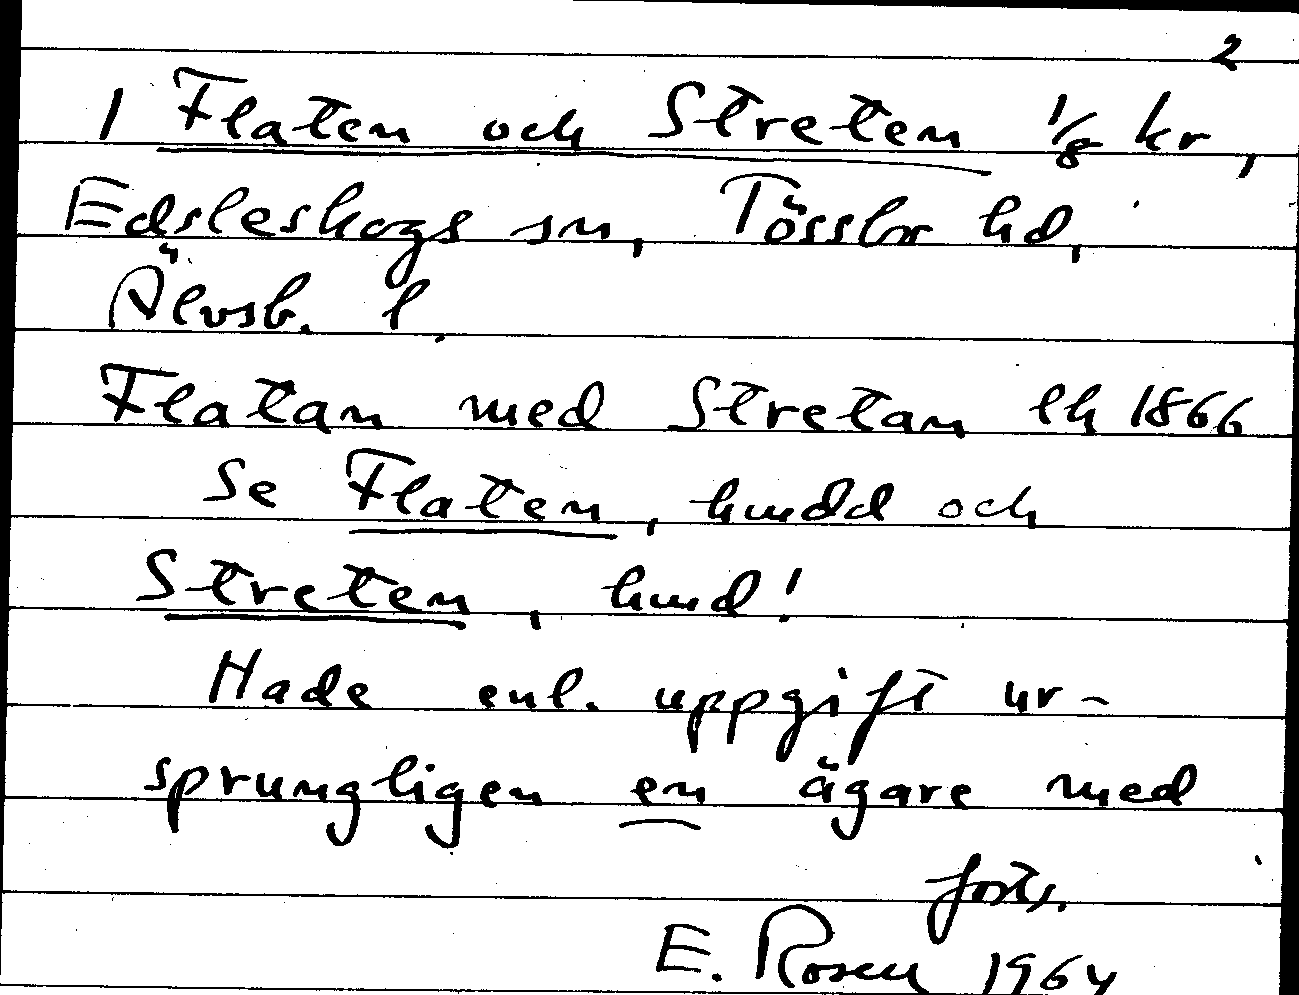 2
1 Flaten och Streten 1/8 kr,
Edsleskogs sn, Tössbo hd,
Älvsb. l.
Flatan med Stretan lk 1866
Se Flaten, hmdd och
Streten, hmd!
Hade enl. uppgift ur-
sprungligen en ägare med
forts.
E. Rosell 1964